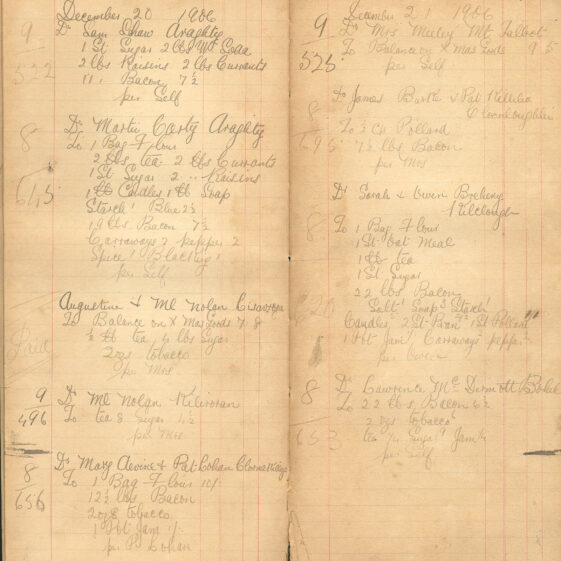 December 20 1906
9 Dr Sam Shaw Araghty
1 St Sugar 2 lbs Mt Seaa
522 2 lbs Raisins 2 lbs Currants
11 Bacon 7½
per Self
8 Dr Martin Carty Araghty
To 1 Bag Flour
2 lbs tea 2 lbs Currants
645 1 St Sugar 2 " Raisins
1 lb Candles 1 lb Soap
Starch Blue 2½
19 lbs Bacon 7½
Carraways 2 pepper 2
Spice Blacking
per Self
Augustine & Ml Nolan
To Balance on Xmas Goods 7 8
Paid ½ lb tea ¼ lbs Sugar
2 ozs tobacco
per Mrs
9 Dr Ml Nolan Kilvoran
496 To tea & Sugar 4½
per Mrs
8 Dr Mary Devine & Pat Cohan
To 1 Bag Flour 10/-
656 12½ lbs Bacon
2 ozs tobacco
1 Pot Jam 1/-
per P Cohan
December 21 1906
9 Dr Mrs Mt Talbot
525 To Balance on Xmas Goods 9 5
per Self
8 Dr James Burke & Pat Killilea
Cloonloughlin
695 To ½ Cw Pollard
7½ lbs Bacon
per Mrs
Dr Sarah & Owen Breheny
Kilclough
8 To 1 Bag Flour
1 St Oat Meal
1 lb tea
1 St Sugar
22 lbs Bacon
Salt Soap Starch
Candles 2 St Bran 1 St Pollard
1 Pot Jam Carraways pepper
per Owen
8 Dr Lawrence McDermott
To 22 lbs Bacon 6½
2 ozs tobacco
653 tea Sugar Jam
per Self